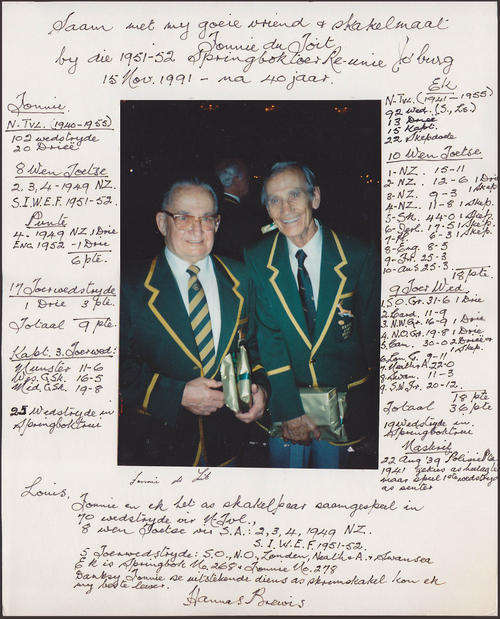 Saam met my goeie vriend & skakelmaat
Fonnie du Toit
by die 1951-52 Springboktoer Re-unie Jo'burg
15 Nov. 1991 - na 40 jaar.
Fonnie.
N-TVL. (1940-1955)
102 wedstryde
20 Drieë
8 Wen Toetse
2, 3, 4 - 1949 NZ.
S.I.W.E.F. 1951-52.
Punte
4. 1949 NZ 1 Drie
Eng 1952 - 1 Drie
6 pte.
17 Toerwedstryde
1 Drie 3 pte.
Totaal 9 pte.
Kapt. 3. Toerwed:
Munster 11-6
Wes. G. Sk. 16-5
Mid. G. Sk. 19-8
25 Wedstryde in
Springboktrui
Ek
N-TVL. (1941-1955)
92 wed. (S, Ls.)
13 Drieë
15 Kapt.
22 Skepdoele
10 Wen Toetse
1-NZ. 15-11
2-NZ. 12-6 1 Drie
3-NZ. 9-3 1 Skep.
4-NZ. 11-8 1 Skep.
5-Sk. 44-0 1 Skep.
6-Ierl. 17-5 1 Skep.
7-W. 6-3 1 Skep.
8-Eng. 8-3
9-Fr. 25-3
10-Aus 25-3
18 pte.
9 Toer Wed.
1. S.O. Gr. 31-6 1 Drie
2. Card. 11-9
3. N.W. Gr. 16-9 1 Drie
4. N.O. Gr. 19-8 1 Drie.
5. Cam. 30-0 1 Drie &
1 Skep.
6. Lon T. 9-11
7. Neath & A. 22-0
8. Swan. 11-3
9. S.W. Fr. 20-12.
18 pte
Totaal 36 pte
19 Wedstryde in
Springboktrui
22 Aug '39 Polisie
1941 gekies as
maar speel 1ste wedstryd
as senter
Fonnie & Ek
Louis,
Fonnie en ek het as skakelpaar saamgespeel in
70 wedstryde vir N.Tvl.,
8 wen Toetse vir S.A. : 2, 3, 4, 1949 NZ.
S.I.W.E.F. 1951-52.
5 Toerwedstryde: S.O., N.O., Londen, Neath & A. & Swansea
Ek is Springbok No. 268 & Fonnie No. 278
Danksy Fonnie se uitstekende diens as skrumskakel kon ek
my beste lewer.
Hannes Brewis